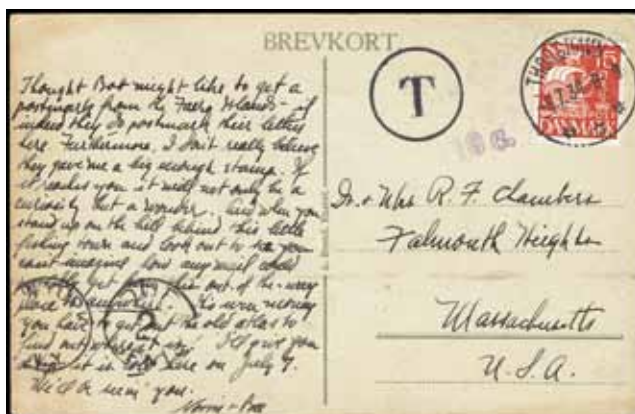 BREVKORT
Thought Bob might like to get a
postmark from the Faero Islands – if
indeed they do postmark their letters
here. Furthermore, I don't really believe
they gave me a big enough stamp. If
it reaches you it will not only be a
curiosity but a wonder. And when you
stand up on the hill behind this little
fishing town and look out to sea you
can't imagine how any mail could
possibly get from this out of the way
place to anywhere.
you have to get out the old atlas to
find out where it is! I'll give you
it is cold here on July 9.
you.
T
15
DANMARK
THORSHAVN
10 c.
Dr. & Mrs R. F. Chambers
Falmouth Heights
Massachusetts
U.S.A.